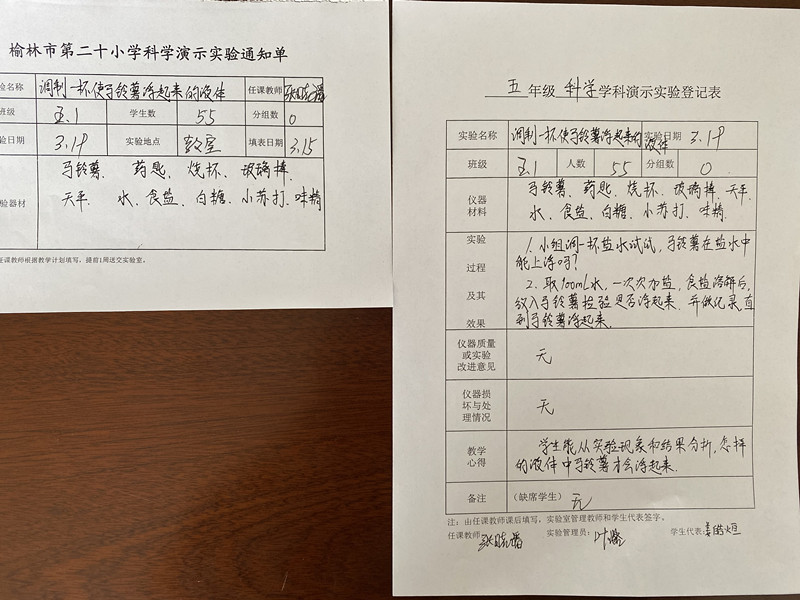 榆林市第二十小学科学演示实验通知单
验名称 调制一杯使马铃薯浮起来的液体 任课教师
班级 五.1 学生数 55 分组数 0
验日期 3.19 实验地点 教室 填表日期 3.15
验器材
马铃薯、药匙、烧杯、玻璃棒、
天平、水、食盐、白糖、小苏打、味精
任课教师根据教学计划填写，提前1周送交实验室。
五年级 科学学科演示实验登记表
实验名称 调制一杯使马铃薯浮起来的液体 实验日期 3.19
班级 五.1 人数 55 分组数 0
仪器
材料
马铃薯、药匙、烧杯、玻璃棒、天平、
水、食盐、白糖、小苏打、味精.
实验
过程
及其
效果
1.小组调一杯盐水试试，马铃薯在盐水中
能上浮吗？
2.取100mL水，一次次加盐，食盐溶解后，
放入马铃薯检验是否浮起来.并做纪录,直
到马铃薯浮起来.
仪器质量
或实验
改进意见
无
仪器损
坏与处
理情况
无
教学
心得
学生能从实验现象和结果分析,怎样
的液体中马铃薯才会浮起来.
备注 （缺席学生） 无
注：由任课教师课后填写，实验室管理教师和学生代表签字。
任课教师： 实验管理员： 学生代表: